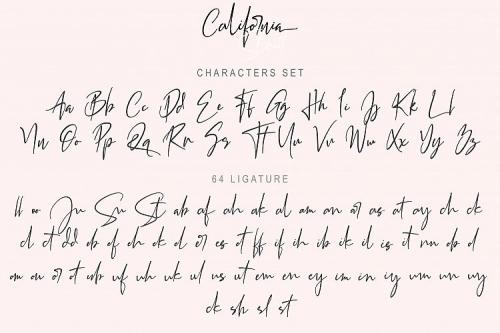 California
CHARACTERS SET
Aa Bb Cc Dd Ee Ff Gg Hh Ii Jj Kk Ll
Nn Oo Pp Qq Rr Ss Tt Uu Vv Ww Xx Yy Zz
64 LIGATURE
ll oo Ju Su St ab af ah ak al am an ar as at ay ch ck
cl ct dd eb ef eh ek el er es et ff if ih ib ik il is it nn ob
om on or ot ub uf uh uk ul us ut em en ey im in iy um un uy
ck sh sl st